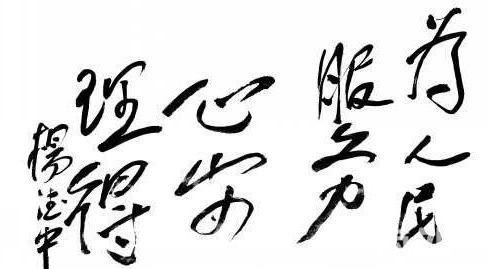 为人民
服务
心安
理得
楊德中